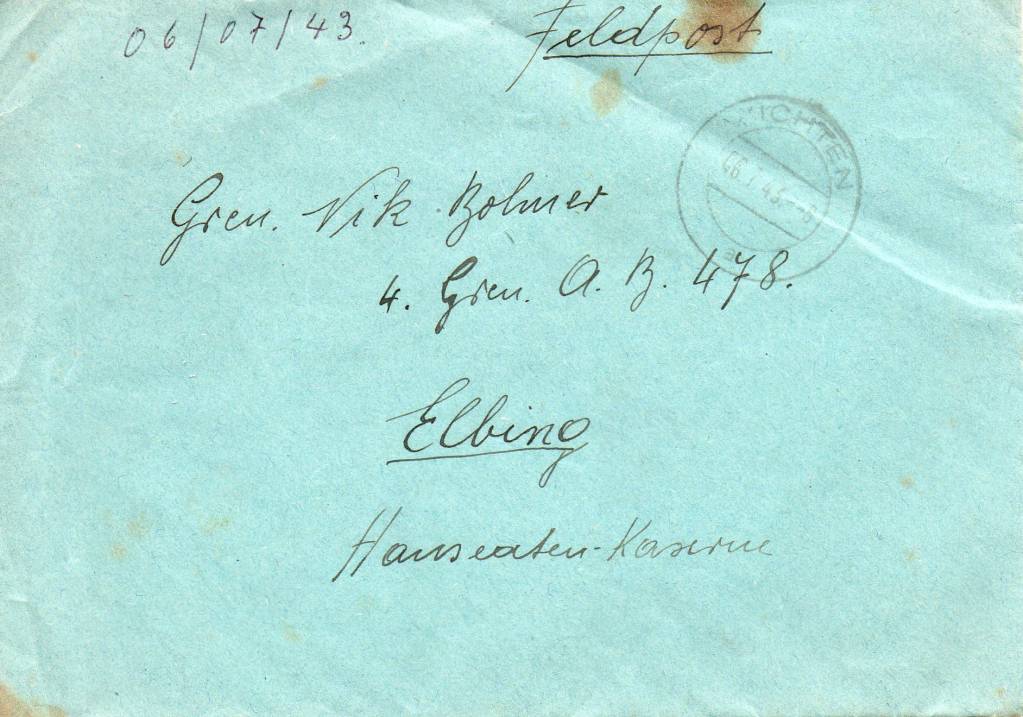 06/07/43.
Feldpost
WICHTEN
Gren. Nik Bolmer
4. Gren. A. B. 478.
Elbing
Hanseaten-Kaserne